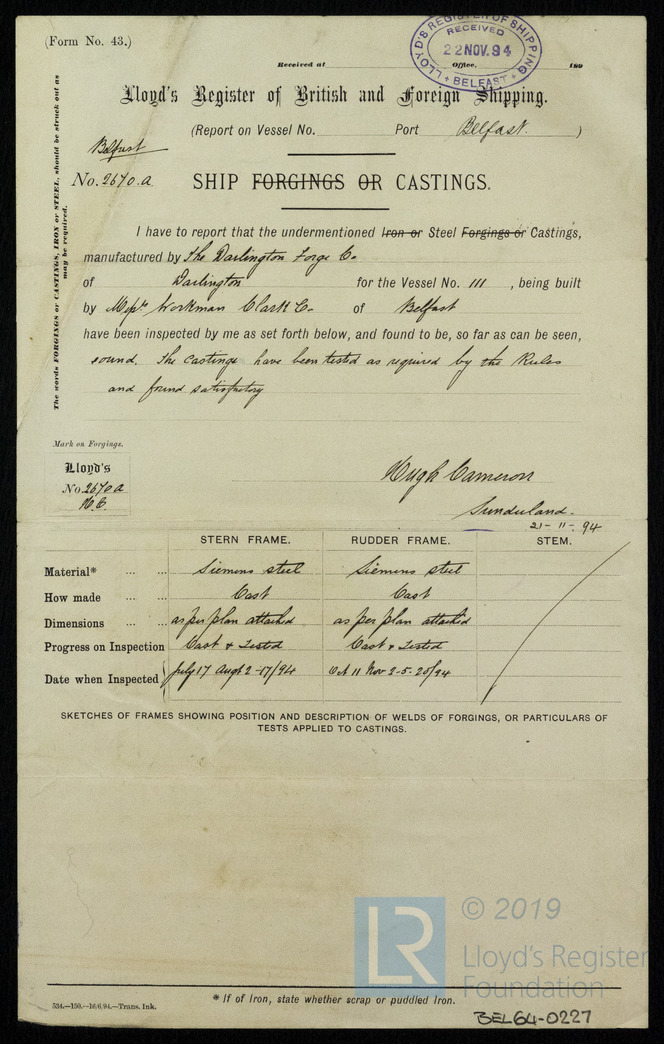 (Form No. 43.)
LLOYD'S REGISTER OF SHIPPING
RECEIVED
22 NOV. 94
BELFAST
Received at Office, 189
Lloyd's Register of British and Foreign Shipping.
(Report on Vessel No. Port Belfast. )
Belfast
No. 2670.a SHIP FORGINGS OR CASTINGS.
The words FORGINGS or CASTINGS, IRON or STEEL, should be struck out as
may be required.
I have to report that the undermentioned Iron or Steel Forgings or Castings,
manufactured by The Darlington Forge Co
of Darlington for the Vessel No. 111 , being built
by Workman Clark & Co. of Belfast
have been inspected by me as set forth below, and found to be, so far as can be seen,
sound. The castings have been tested as required by the Rules
and found satisfactory
Mark on Forgings.
Lloyd's
No 2670a
H.C.
Hugh Cameron
Sunderland.
21-11-94
STERN FRAME. RUDDER FRAME. STEM.
Material* ... ... Siemens steel Siemens steel
How made ... ... Cast Cast
Dimensions ... ... as per plan attached as per plan attached
Progress on Inspection Cast & Tested Cast & Tested
Date when Inspected July 17 Augt 2-17/94 Oct 11 Nov 2-5-20/94
SKETCHES OF FRAMES SHOWING POSITION AND DESCRIPTION OF WELDS OF FORGINGS, OR PARTICULARS OF
TESTS APPLIED TO CASTINGS.
LR
© 2019
Lloyd's Register
Foundation
* If of Iron, state whether scrap or puddled Iron.
534.—150.—16/6/94.—Trans. Ink.
BEL64-0227